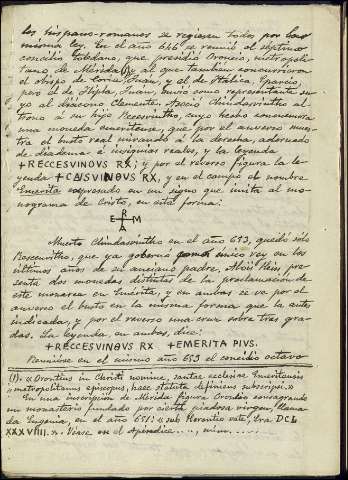 los hispano-romanos se regiesen todos por la
misma ley. En el año 646 se reunió el séptimo
concilio toledano, que presidió Oroncio, metropoli-
tano de Mérida (1), y al que también concurrieron
el obispo de Coria, Juan, y el de Itálica, Eparcio,
pero el de Niebla, Juan, envió como representante su-
yo al diácono Clemente. Asoció Chindasvintho al
trono á su hijo Recesvintho, cuyo hecho conmemora
una moneda emeritense, que por el anverso mues-
tra el busto real mirando á la derecha, adornado
de diadema é insignias reales, y la leyenda
+RECCESVINΘVS RX; y por el reverso figura la le-
yenda +CINSVINΘVS RX, y en el campo el nombre
Emerita expresado en un signo que imita al mo-
nograma de Cristo, en esta forma:
R
E M
A
Muerto Chindasvintho en el año 653, quedó sólo
Recesvintho, que ya gobernó como único rey en los
últimos años de su anciano padre. Aloïs Heiss pre-
senta dos monedas distintas de la proclamación de
este monarca en Emerita, y en ambas se ve por el
anverso el busto en la misma forma que la antes
indicada, y por el reverso una cruz sobre tres gra-
das. La leyenda, en ambas, dice:
+RECCESVINΘVS RX +EMERITA PIVS.
Reunióse en el mismo año 653 el concilio octavo
(1). «Orontius in Christi nomine, sanctae ecclesiae Emeritensis
metropolitanus episcopus, haec statuta definiens subscripsi.»
En una inscripción de Mérida figura Oroncio consagrando
un monasterio fundado por cierta piadosa virgen, llama-
da Eugenia, en el año 651: «sub Horontio vate, Era DCL
XXXVIIII.». Véase en el Apéndice..., núm.......